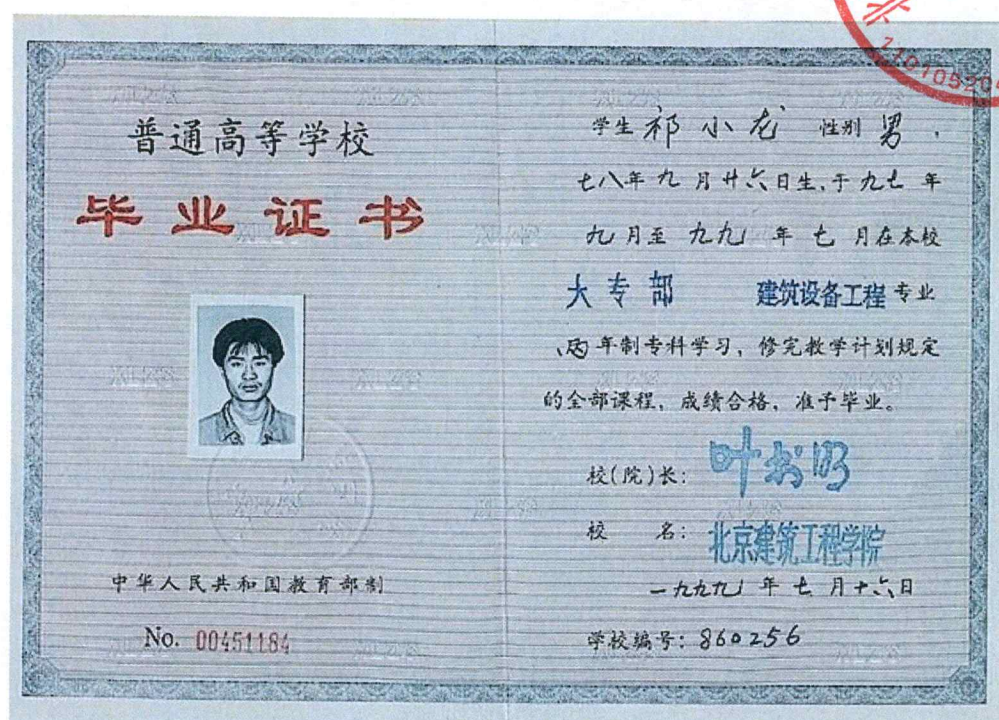 普通高等学校
毕业证书
中华人民共和国教育部制
No. 00451184
学生 祁小龙 性别 男
七八年九月廿六日生,于九七年
九月至九九年七月在本校
大专部 建筑设备工程专业
两年制专科学习,修完教学计划规定
的全部课程,成绩合格,准予毕业。
校(院)长: 叶书明
校 名: 北京建筑工程学院
一九九九年七月十六日
学校编号: 860256